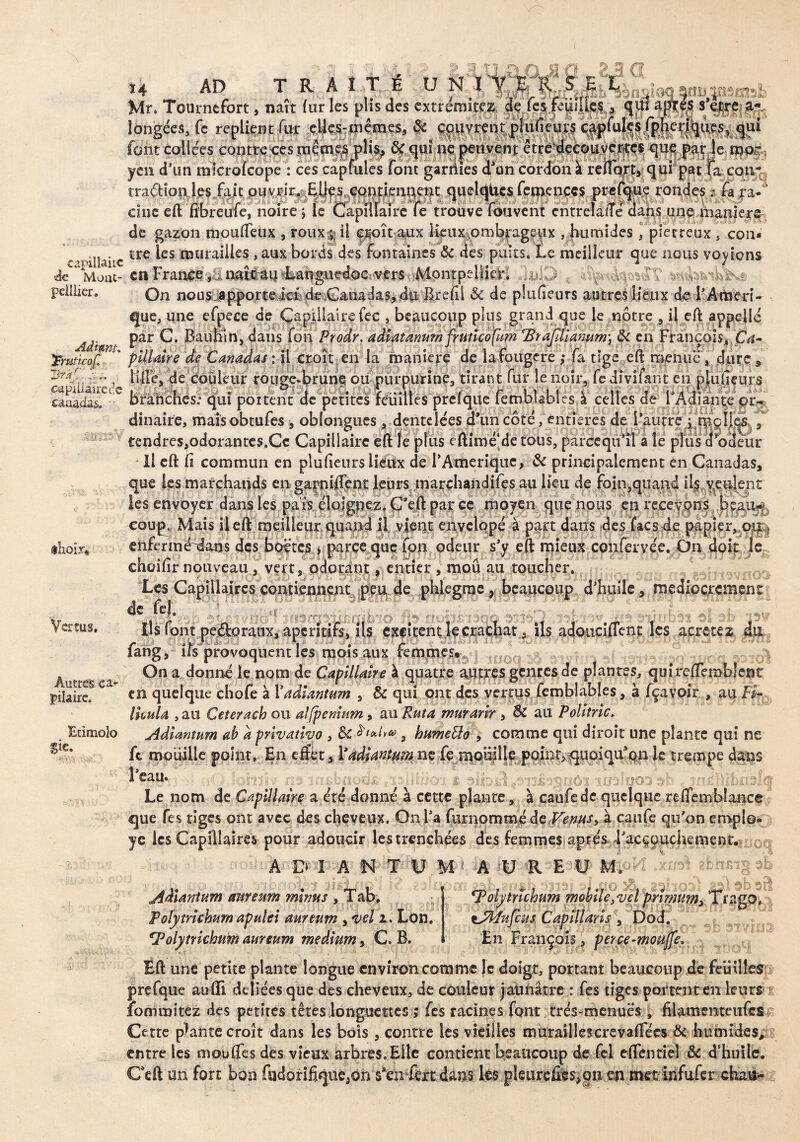 14 AD TRAITÉ UNIVERSEL
Mr. Tournefort, naît sur les plis des extrémitez de ses feüilles, qui aprés s'être a-
longées, se replient sur elles-mêmes, & couvrent plusieurs capsules spheriques, qui
sont collées contre ces mêmes plis, & qui ne peuvent être decouvertes que par le mo-
yen d'un microscope : ces capsules sont garnies d'un cordon à ressort, qui par sa con-
traction les fait ouvrir. Elles contiennent quelques semences presque rondes : sa ra-
cine est fibreuse, noire ; le Capillaire se trouve souvent entrelassé dans une maniere
de gazon mousseux, roux ; il croît aux lieux ombrageux, humides, pierreux, con-
tre les murailles, aux bords des fontaines & des puits. Le meilleur que nous voyions
en France, naît au Languedoc vers Montpellier.
capillaire
de Mont-
pellier.
On nous apporte ici de Canadas, du Bresil & de plusieurs autres lieux de l'Ameri-
que, une espece de Capillaire sec, beaucoup plus grand que le nôtre, il est appellé
par C. Bauhin, dans son Prodr. adiatanum fruticosum Brasilianum; & en François, Ca-
pillaire de Canadas : il croît en la maniere de la fougere ; sa tige est menuë, dure,
lisse, de couleur rouge-brune ou purpurine, tirant sur le noir, se divisant en plusieurs
branches: qui portent de petites feüilles presque semblables à celles de l'Adiante or-
dinaire, mais obtuses, oblongues, dentelées d'un côté, entieres de l'autre ; molles,
tendres, odorantes. Ce Capillaire est le plus estimé de tous, parcequ'il a le plus d'odeur
Adiant.
Fruticos.
Bras.
capillaire de
canadas.
Il est si commun en plusieurs lieux de l'Amerique, & principalement en Canadas,
que les marchands en garnissent leurs marchandises au lieu de foin, quand ils veulent
les envoyer dans les païs éloignez. C'est par ce moyen que nous en recevons beau-
coup. Mais il est meilleur quand il vient envelopé à part dans des sacs de papier, ou
enfermé dans des boëtes, parce que son odeur s'y est mieux conservée. On doit le
choisir nouveau, vert, odorant, entier, mou au toucher.
choix.
Les Capillaires contiennent peu de phlegme, beaucoup d'huile, mediocrement
de sel.
Ils sont pectoraux, aperitifs, ils excitent le crachat, ils adoucissent les acretez du
sang, ils provoquent les mois aux femmes.
Vertus.
On a donné le nom de Capillaire à quatre autres genres de plantes, qui ressemblent
en quelque chose à l'adiantum, & qui ont des vertus semblables, à sçavoir, au Fi-
licula, au Ceterach ou alspenium, au Ruta murarir, & au Politric.
Autres ca-
pilaire.
Adiantum ab à privativo, & humecto, comme qui diroit une plante qui ne
se moüille point. En effet, l'adiantum ne se moüille point, quoiqu'on le trempe dans
l'eau.
Etimolo
gie.
Le nom de Capillaire a été donné à cette plante, à cause de quelque ressemblance
que ses tiges ont avec des cheveux. On l'a surnommé de Venus, à cause qu'on emplo-
ye les Capillaires pour adoucir les trenchées des femmes aprés l'accouchement.
ADIANTUM AUREUM.
Adiantum aureum minus, Tab.
Polytrichum apulei aureum, vel 2. Lon.
Polytrichum aureum medium, C. B.
Polytrichum mobile, vel primum, Trago.
Muscus Capillaris, Dod.
En François, perce-mousse.
Est une petite plante longue environ comme le doigt, portant beaucoup de feüilles
presque aussi deliées que des cheveux, de couleur jaunâtre : ses tiges portent en leurs
sommitez des petites têtes longuettes ; ses racines sont trés-menuës, filamenteuses
Cette plante croît dans les bois, contre les vieilles murailles crevassées & humides,
entre les mousses des vieux arbres. Elle contient beaucoup de sel essentiel & d'huile.
C'est un fort bon sudorifique, on s'en sert dans les pleuresies, on en met infuser chau-